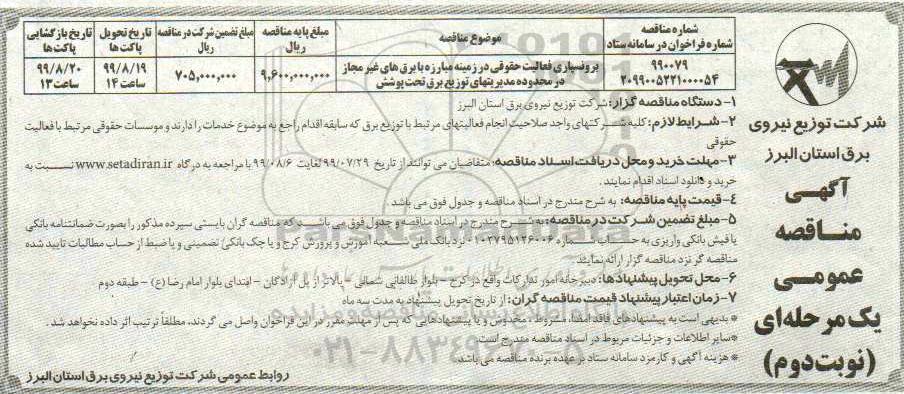 شرکت توزیع نیروی
برق استان البرز
آگهی
مناقصه
عمومی
یک مرحله‌ای
(نوبت دوم)
شماره مناقصه
شماره فراخوان در سامانه ستاد
موضوع مناقصه
مبلغ پایه مناقصه
ریال
مبلغ تضمین شرکت در مناقصه
ریال
تاریخ تحویل
پاکت‌ها
تاریخ بازگشایی
پاکت‌ها
۹۹۰۰۷۹
۲۰۹۹۰۰۵۲۲۱۰۰۰۰۵۴
برونسپاری فعالیت حقوقی در زمینه مبارزه با برق های غیر مجاز
در محدوده مدیریتهای توزیع برق تحت پوشش
۹,۶۰۰,۰۰۰,۰۰۰
۷۰۵,۰۰۰,۰۰۰
۹۹/۸/۱۹
ساعت ۱۴
۹۹/۸/۲۰
ساعت ۱۳
۱- دستگاه مناقصه گزار: شرکت توزیع نیروی برق استان البرز
۲- شرایط لازم: کلیه شرکتهای واجد صلاحیت انجام فعالیتهای مرتبط با توزیع برق که سابقه اقدام راجع به موضوع خدمات را دارند و موسسات حقوقی مرتبط با فعالیت
حقوقی
۳- مهلت خرید و محل دریافت اسناد مناقصه: متقاضیان می توانند از تاریخ ۹۹/۰۷/۲۹ لغایت ۹۹/۰۸/۶ با مراجعه به درگاه www.setadiran.ir نسبت به
خرید و دانلود اسناد اقدام نمایند.
۴- قیمت پایه مناقصه: به شرح مندرج در اسناد مناقصه و جدول فوق می باشد
۵- مبلغ تضمین شرکت در مناقصه: به شرح مندرج در اسناد مناقصه و جدول فوق می باشد که مناقصه گران بایستی سپرده مذکور را بصورت ضمانتنامه بانکی
یا فیش بانکی واریزی به حساب شماره ۰۱۰۲۷۹۵۱۲۶۰۰۶ نزد بانک ملی شعبه آموزش و پرورش کرج و یا چک بانکی تضمینی و یا ضبط از حساب مطالبات تایید شده
مناقصه گر نزد مناقصه گزار ارائه نمایند
۶- محل تحویل پیشنهادها: دبیرخانه امور تدارکات واقع در کرج - بلوار طالقانی شمالی - بالاتر از پل آزادگان - ابتدای بلوار امام رضا (ع) - طبقه دوم
۷- زمان اعتبار پیشنهاد قیمت مناقصه گران: از تاریخ تحویل پیشنهاد به مدت سه ماه
* بدیهی است به پیشنهادهای فاقد امضاء، مشروط، مخدوش و یا پیشنهادهایی که پس از مهلت مقرر در این فراخوان واصل می گردند، مطلقاً ترتیب اثر داده نخواهد شد.
* سایر اطلاعات و جزئیات مربوط در اسناد مناقصه مندرج است.
* هزینه آگهی و کارمزد سامانه ستاد بر عهده برنده مناقصه می باشد.
روابط عمومی شرکت توزیع نیروی برق استان البرز